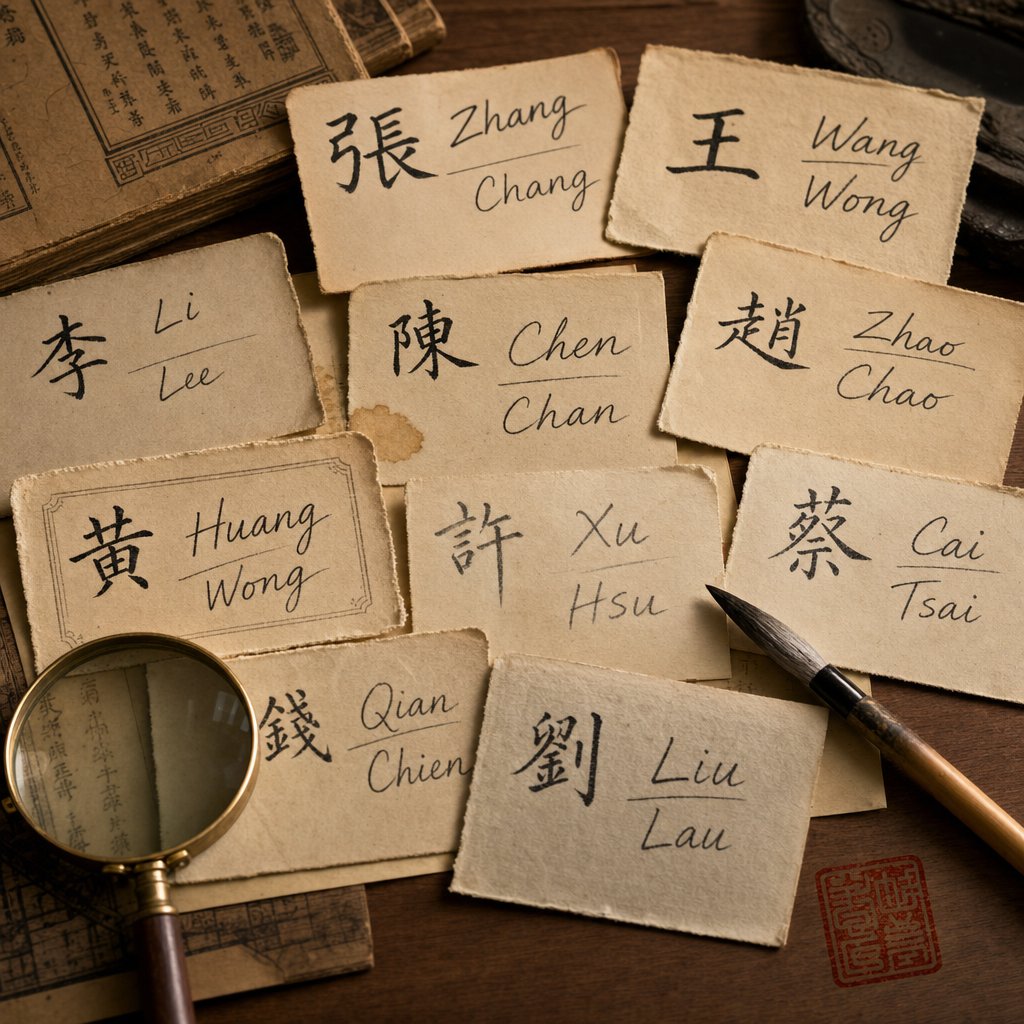 張 Zhang
Chang
王 Wang
Wong
李 Li
Lee
陳 Chen
Chan
趙 Zhao
Chao
黃 Huang
Wong
許 Xu
Hsu
蔡 Cai
Tsai
錢 Qian
Chien
劉 Liu
Lau